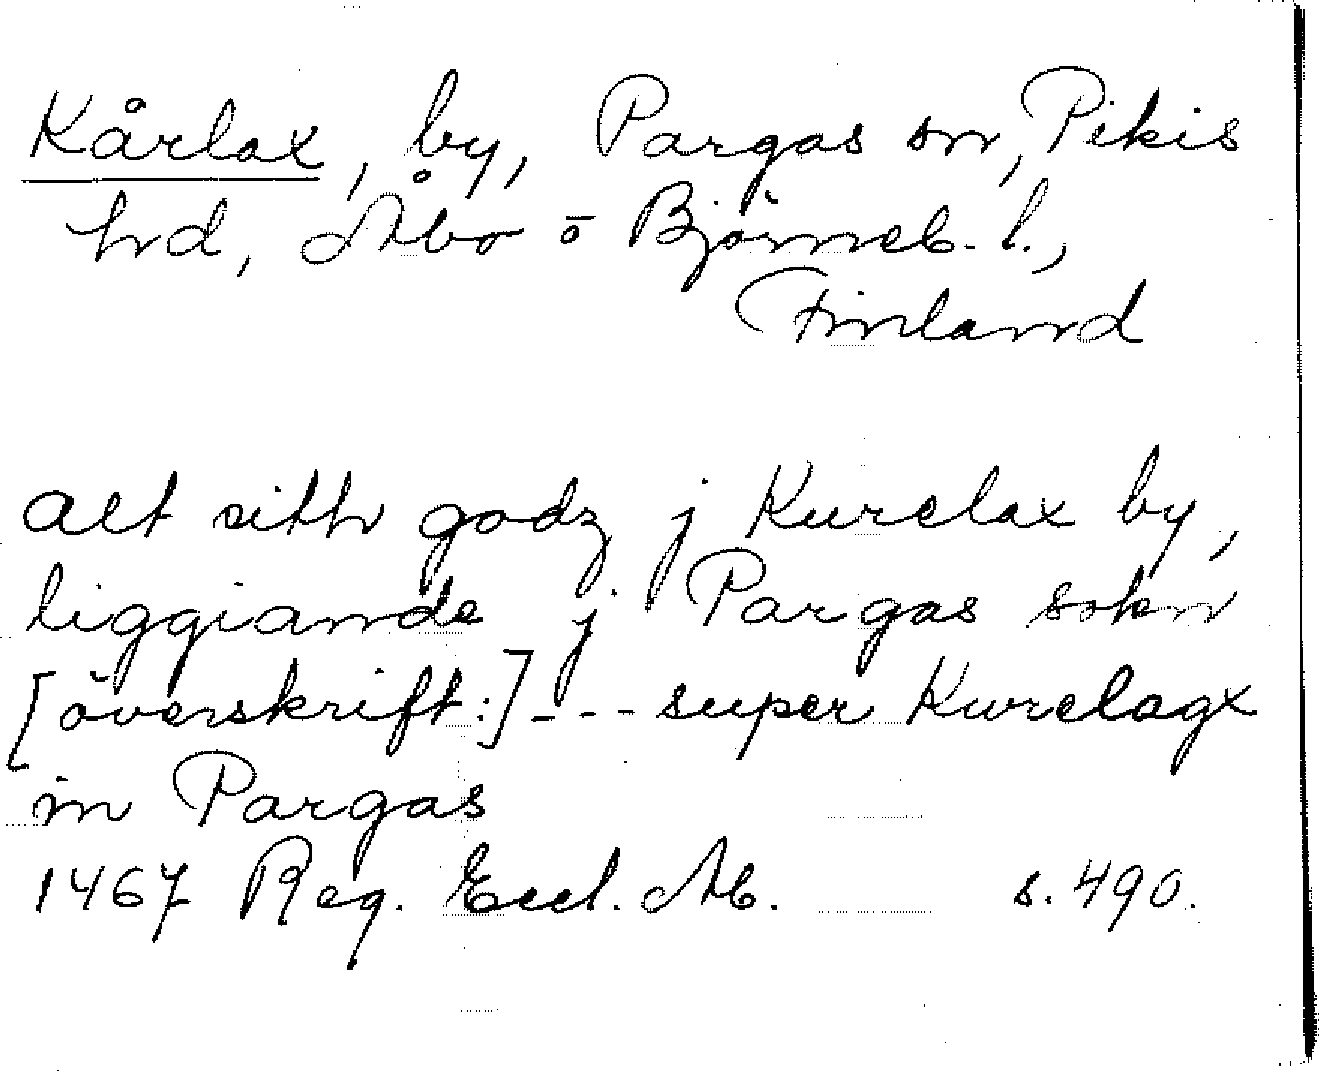 Kårlax, by, Pargas sn, Pikis
hd, Åbo o Björneb. l.,
Finland
alt sith godz j Kurelax by,
liggiande j Pargas sokn
[överskrift:] - - - super Kurelagx
in Pargas
1467 Reg. Eccl. Ab. s. 490.